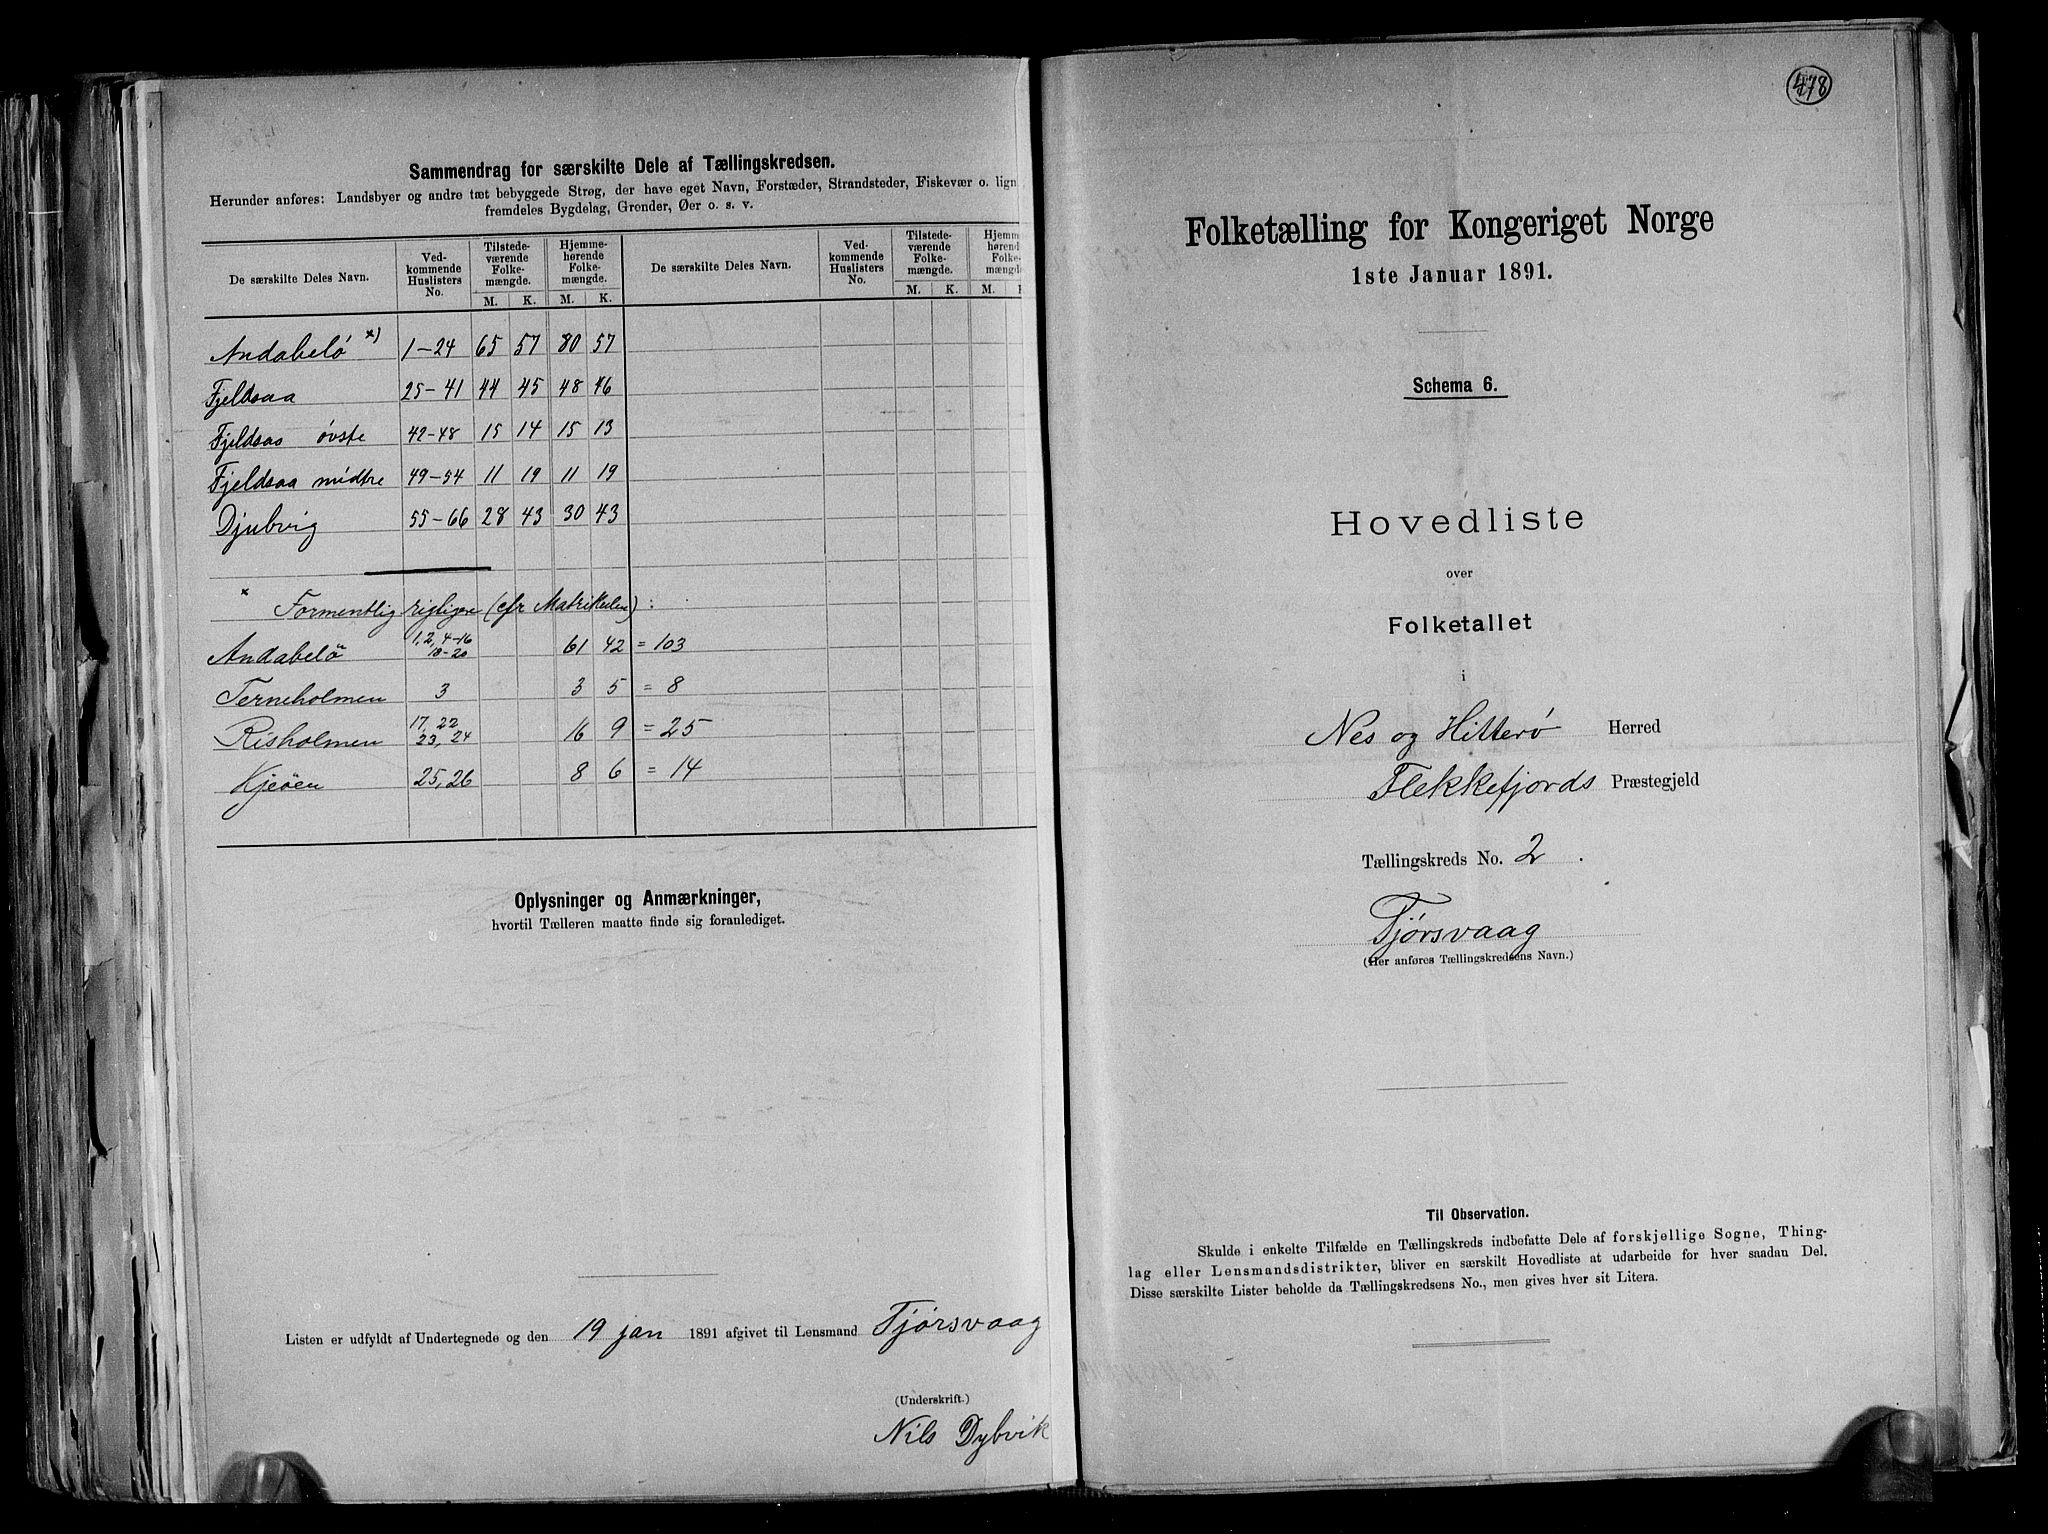 Sammendrag for særskilte Dele af Tællingskredsen.
Herunder anføres: Landsbyer og andre tæt bebyggede Strøg, der have eget Navn, Forstæder, Strandsteder, Fiskevær o. lign
fremdeles Bygdelag, Grender, Øer o. s. v.
De særskilte Deles Navn. Ved-kommende Huslisters No. Tilstede-værende Folke-mængde. Hjemme-hørende Folke-mængde. De særskilte Deles Navn. Ved-kommende Huslisters No. Tilstede-værende Folke-mængde. Hjemme hørend Folke-mængde.
M. K. M. K. M. K. M.
Andabelö x) 1-24 65 57 80 57
Fjeldsaa 25-41 44 45 48 46
Fjeldsaa øvste 42-48 15 14 15 13
Fjeldsaa midtre 49-54 11 19 11 19
Djubvig 55-66 28 43 30 43
x Formentlig rigtigere (cfr Matrikulen) :
Andabelö 1, 2, 4-16 18-20 61 42 = 103
Terneholmen 3 3 5 = 8
Risholmen 17, 22 23, 24 16 9 = 25
Kjeöen 25, 26 8 6 = 14
Oplysninger og Anmærkninger,
hvortil Tælleren maatte finde sig foranlediget.
Listen er udfyldt af Undertegnede og den 19 jan 1891 afgivet til Lensmand Tjørsvaag
(Underskrift.)
Nils Dybvik
478
Folketælling for Kongeriget Norge
1ste Januar 1891.
Schema 6.
Hovedliste
over
Folketallet
i
Nes og Hitterø Herred
Flekkefjords Præstegjeld
Tællingskreds No. 2 .
Tjørsvaag
(Her anføres Tællingskredsens Navn.)
Til Observation.
Skulde i enkelte Tilfælde en Tællingskreds indbefatte Dele af forskjellige Sogne, Thing-
lag eller Lensmandsdistrikter, bliver en særskilt Hovedliste at udarbeide for hver saadan Del.
Disse særskilte Lister beholde da Tællingskredsens No., men gives hver sit Litera.